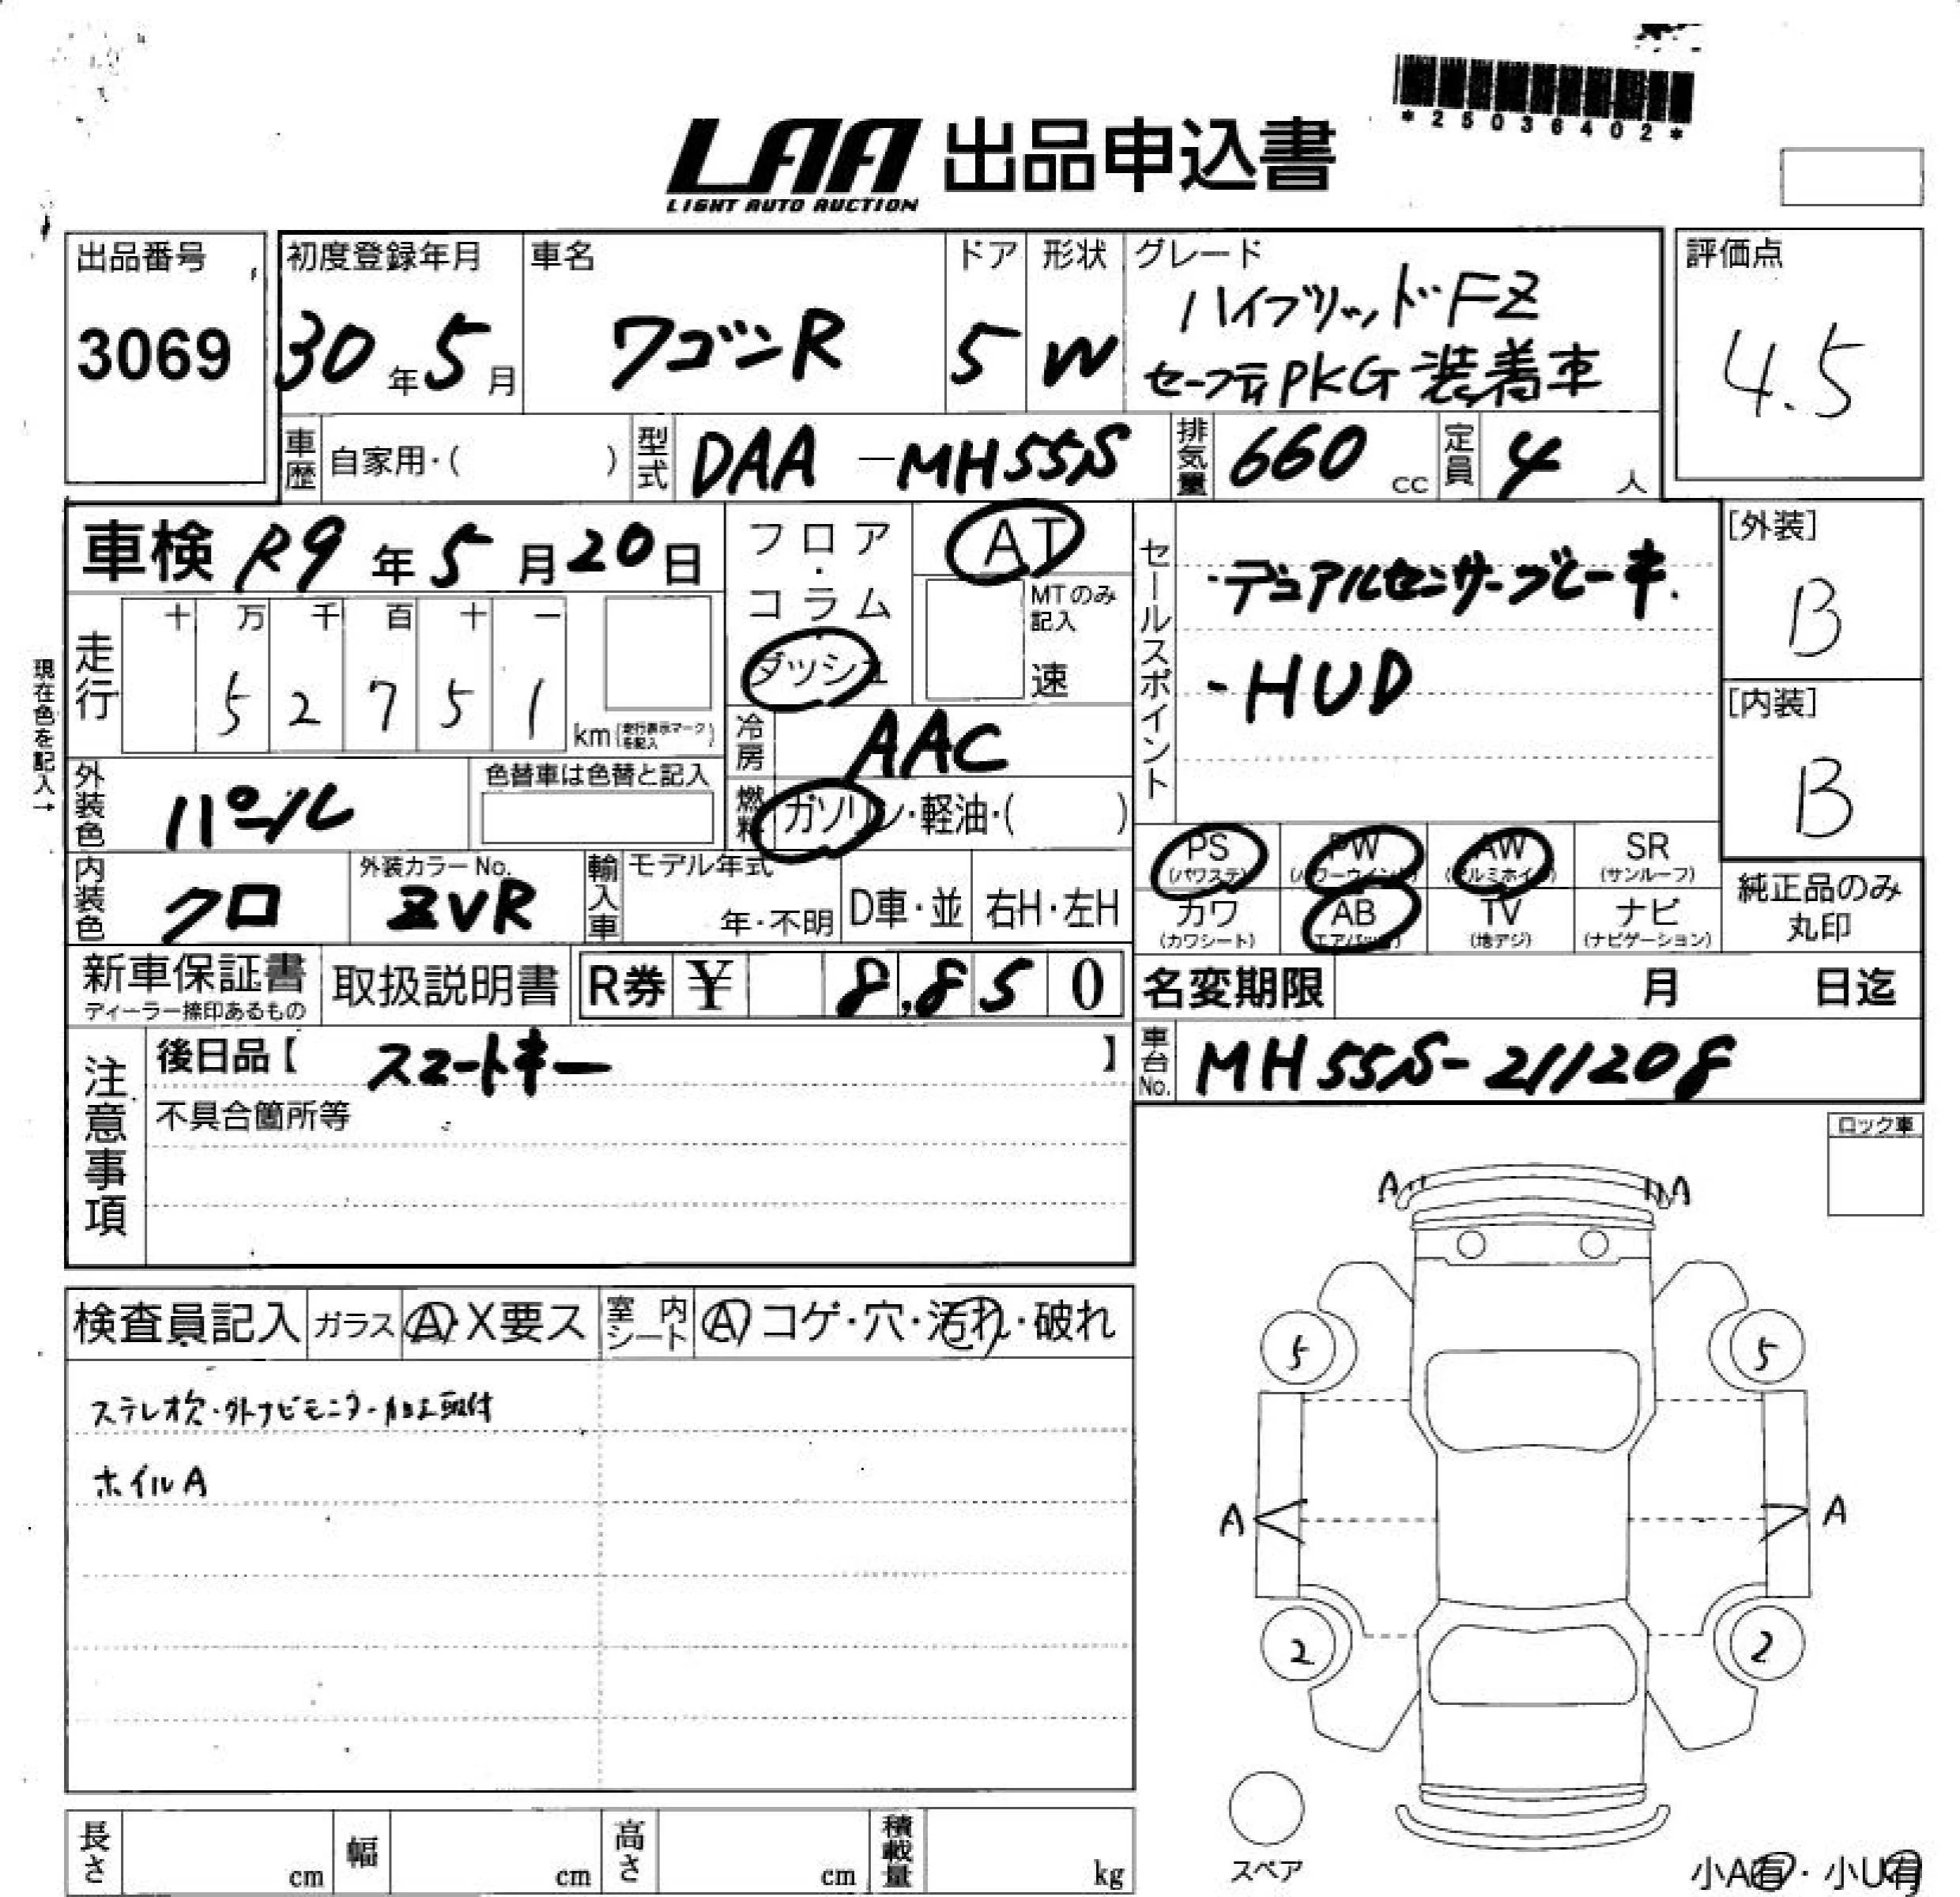 *25036402*
LAA 出品申込書
LIGHT AUTO AUCTION
出品番号
3069
初度登録年月
30年5月
車名
ワゴンR
ドア
5
形状
W
グレード
ハイブリッドFZ
セーフティPKG装着車
評価点
4.5
車歴 自家用・( )
型式 DAA-MH55S
排気量 660cc
定員 4人
車検 R9年5月20日
フロア・コラム
ダッシュ
AT
MTのみ
記入
速
現在色を記入→
走行 十 万 千 百 十 一
5 2 7 5 1
km(走行表示マークを記入)
冷房 AAC
外装色 パール
色替車は色替と記入
燃料 ガソリン・軽油・( )
内装色 クロ
外装カラーNo.
ZVR
輸入車 モデル年式
年・不明
D車・並
右H・左H
セールスポイント
・デュアルセンサーブレーキ.
・HUD
[外装]
B
[内装]
B
PS
(パワステ)
PW
(パワーウインド)
AW
(アルミホイル)
SR
(サンルーフ)
カワ
(カワシート)
AB
(エアバッグ)
TV
(地デジ)
ナビ
(ナビゲーション)
純正品のみ
丸印
新車保証書
ディーラー捺印あるもの
取扱説明書
R券 ¥ 8,850
名変期限 月 日迄
注意事項
後日品【 スマートキー 】
不具合箇所等
車台No. MH55S-211208
ロック車
検査員記入 ガラス A・X要ス 室内シート A コゲ・穴・汚れ・破れ
ステレオ欠・外ナビモニター加工取付
ホイルA
A A
5 5
A A
2 2
スペア
小A有・小U有
長さ cm
幅 cm
高さ cm
積載量 kg